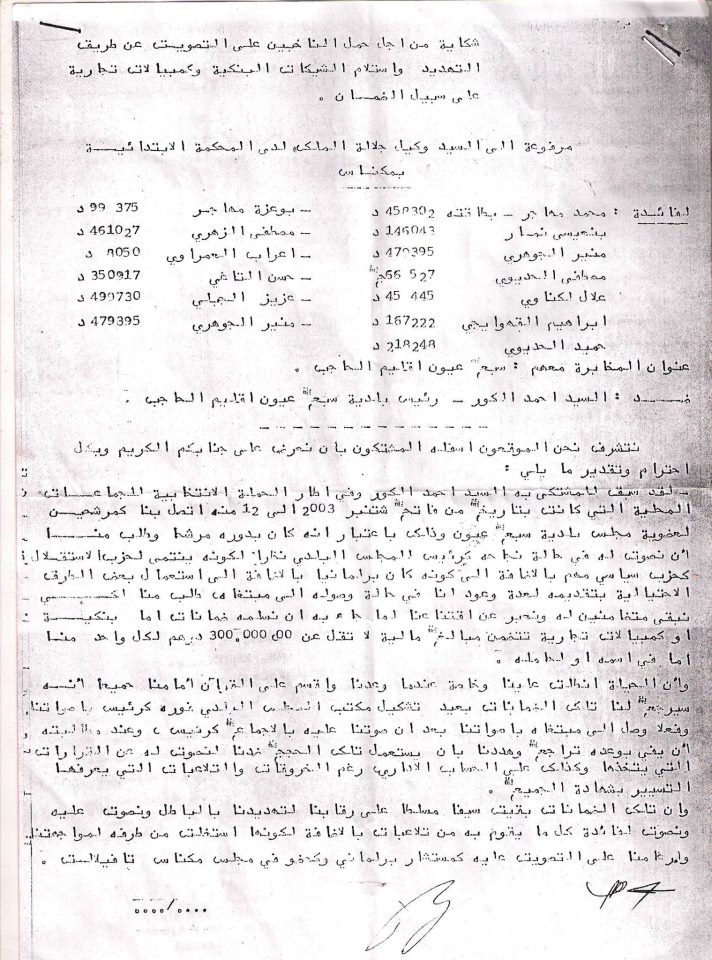 شكاية من اجل حمل الناخبين على التصويت عن طريق
التهديد واستلام الشيكات البنكية وكمبيالات تجارية
على سبيل الضمان .
مرفوعة الى السيد وكيل جلالة الملك لدى المحكمة الابتدائية
بمكناس
لفائدة : محمد مهاجر – بطاقته 458302 د – بوعزة مهاجر 99 375 د
بنعيسى نصار 146043 د – مصطفى الزهري 461027 د
منير الجوهري 479395 د – اعراب العمراوي 8050 د
مصطفى الحديوي 66 527 – حسن التاغي 350917 د
علال لكناوي 45 445 د – عزيز الجبلي 499730 د
ابراهيم القهوايجي 167222 د – منير الجوهري 479395 د
حميد الحديوي 218248 د
عنوان المخابرة معهم : سبع عيون اقليم الحاجب .
ضد : السيد احمد الكور – رئيس بلدية سبع عيون اقليم الحاجب .
نتشرف نحن الموقعون اسفله المشتكون بان نعرض على جنابكم الكريم وبكل
احترام وتقدير ما يلي :
– لقد سبق للمشتكى به السيد احمد الكور وفي اطار الحملة الانتخابية للجماعات
المحلية التي كانت بتاريخ من فاتح شتنبر 2003 الى 12 منه اتصل بنا كمرشحين
لعضوية مجلس بلدية سبع عيون وذلك باعتبار انه كان بدوره مرشحا وطلب منا
ان نصوت له في حالة نجاحه كرئيس المجلس البلدي نظرا لكونه ينتمي لحزب الاستقلال
كحزب سياسي مهم بالاضافة الى كونه كان برلمانيا بالاضافة الى استعمال بعض الطرق
الاحتيالية بتقديمه لعدة وعود انا في حالة وصوله الى مبتغاه طلب منا لكي
نبقى متضامنين له ونعبر عن اقتناعنا لما جاء به ان نسلمه ضمانات اما بنكية
او كمبيالات تجارية تتضمن مبالغ مالية لا تقل عن 300.000,00 درهم لكل واحد منا
اما في اسمه او لحامله .
وأن الحيلة انطلت علينا وخاصة عندما وعدنا واقسم على القرآن أمامنا جميعا انه
سيرجع لنا تلك الضمانات بعيد تشكيل مكتب المجلس البلدي فوزه كرئيس باصواتنا
وفعلا وصل الى مبتغاه باصواتنا بعد ان صوتنا عليه بالاجماع كرئيس ، وعند مطالبته
أن يفي بوعده تراجع وهددنا بان يستعمل تلك الحجج ضدنا لنصوت له عن القرارات
التي يتخذها وكذلك على الحساب الاداري رغم الخروقات والتلاعبات التي يعرفها
التسيير بشهادة الجميع .
وان تلك الضمانات بقيت سيفا مسلطا على رقابنا لتهديدنا بالباطل ونصوت عليه
ونصوت لفائدة كل ما يقوم به من تلاعبات بالاضافة لكونها استغلت من طرفه لمواجهتنا
وارغامنا على التصويت عليه كمستشار برلماني وكعضو في مجلس مكناس تافيلالت .
..../....